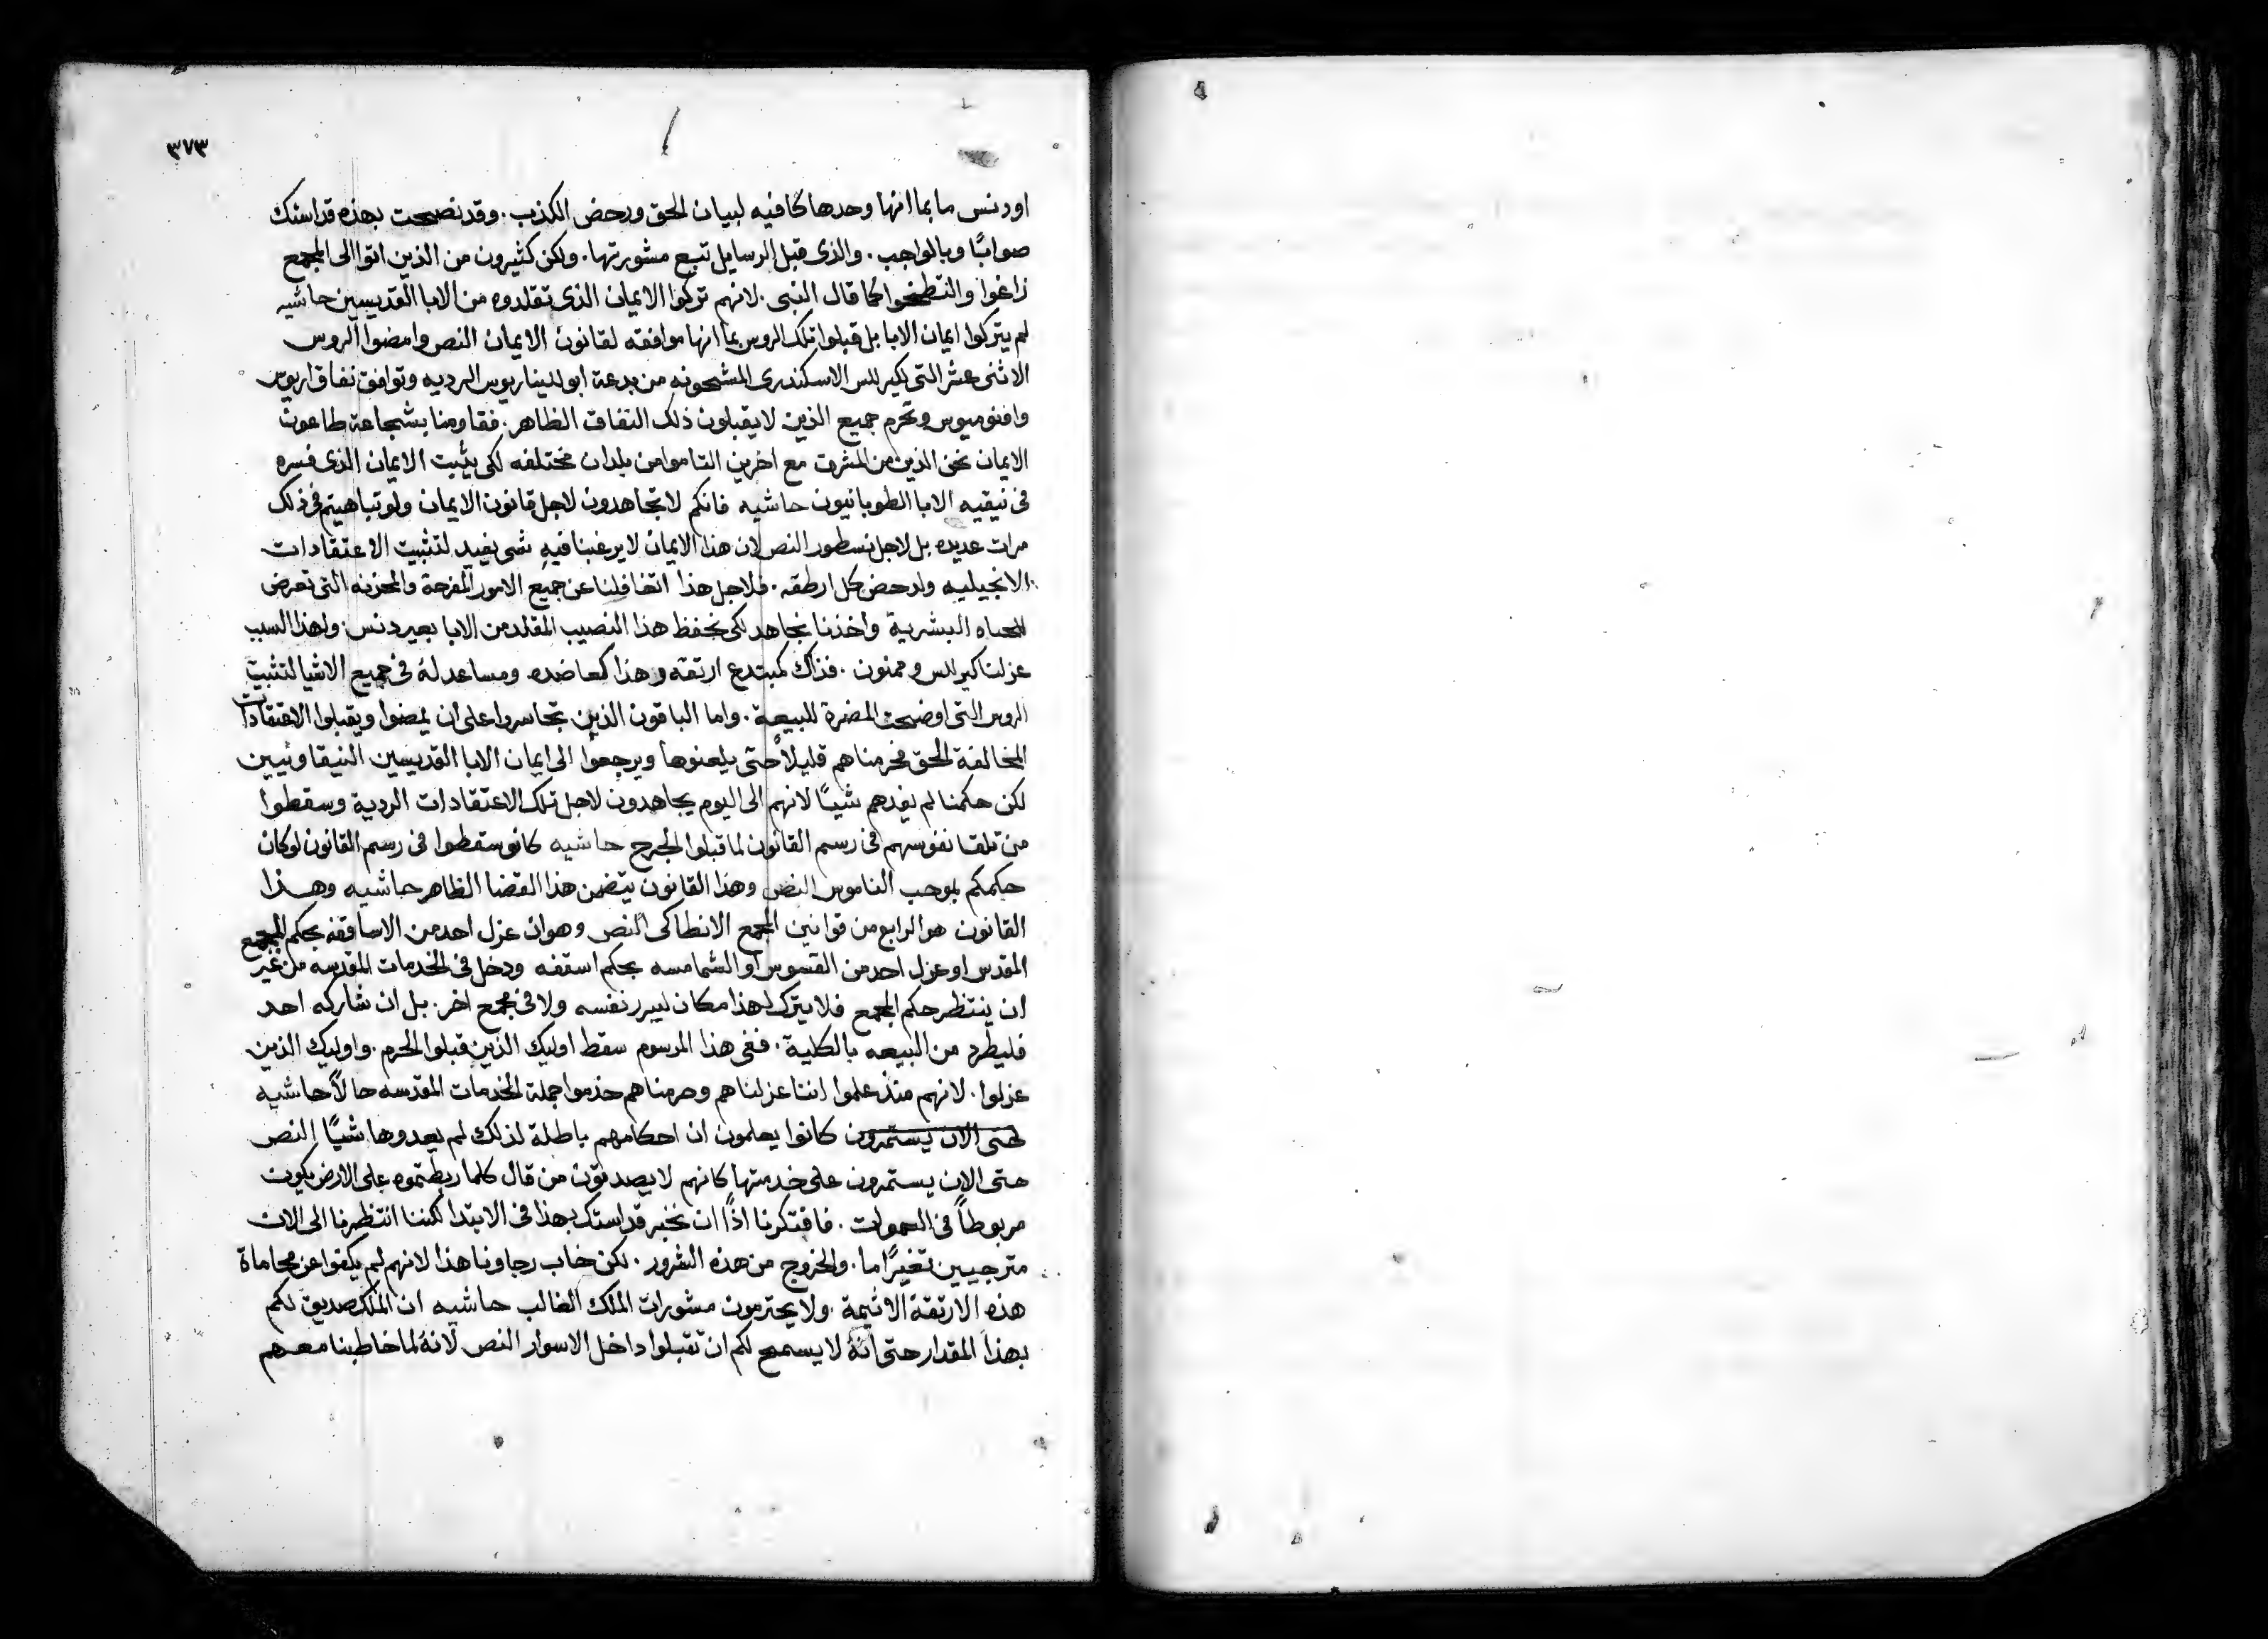 ٣٧٣
او دنس ما بما انها وحدها كافيه لبيان الحق ورحض الكذب. وقد نصحت بهذه قداستك
صوابًا وبالواجب. والذى قبل الرسايل تبع مشورتها. ولكن كثيرون من الذين اتوا الى المجمع
زاغوا والتطخوا كما قال النبى. لانهم تركوا الايمان الذى تقلدوه من الابا القديسين حاشيه
لم يتركوا ايمان الابا بل قبلوا تلك الروس بما انها موافقه لقانون الايمان النص وامضوا الروس
الاثنى عشر التى لكيرللس الاسكندرى المشحونه من بدعة ابوللينار يوس الرديه وتوافق نفاق اريوس
وافنوميوس وتحرم جميع الذين لا يقبلون ذلك النفاق الظاهر. فقاومنا بشجاعة طاعون
الايمان نحن الذين من المشرق مع اخرين التاموا من بلدان مختلفه لكى يثبت الايمان الذى فسره
فى نيقيه الابا الطوبانيون حاشيه فانكم لا تجاهدون لاجل قانون الايمان ولو تباهيتم فى ذلك
مرات عديده بل لاجل نسطور النص لان هذا الايمان لا يرغبنا فيهِ شى يفيد لتثبيت الاعتقادات
الانجيليه ولدحض كل ارطقه. فلاجل هذا اتغافلنا عن جميع الامور المفرحة والمحزنه التى تعرض
للحياه البشرية واخذنا نجاهد لكى نحفظ هذا النصيب المقلد من الابا بغير دنس. ولهذا السبب
عزلنا كيرللس وممنون. فذاك كمبتدع ارتقة وهذا كمعاضده ومساعد لهُ فى جميع الاشيا لتثبيت
الروس التى اوضحت المضرة للبيعة. واما الباقون الذين تجاسروا على ان يمضوا ويقبلوا الاعتقادات
المخالفة للحق فحرمناهم قليلاً حتى يلعنوها ويرجعوا الى ايمان الابا القديسين النيقاويين
لكن حكمنا لم يفدهم شيًا لانهم الى اليوم يجاهدون لاجل تلك الاعتقادات الردية وسقطوا
من تلقا نفوسهم فى رسم القانون لما قبلوا الجرح حاشيه كانو سقطوا فى رسم القانون لو كان
حكمكم بموجب الناموس النص وهذا القانون يتضمن هذا القضا الظاهر حاشيه وهذا
القانون هو الرابع من قوانين المجمع الانطاكى النص وهو ان عزل احد من الاساقفه بحكم المجمع
المقدس او عزل احد من القسوس او الشمامسه بحكم اسقفه ودخل فى الخدمات المقدسه من غير
ان ينتظر حكم المجمع فلا يترك لهذا مكان ليبرر نفسه ولا فى مجمع اخر. بل ان شاركه احد
فليطرد من البيعه بالكلية. ففى هذا المرسوم سقط اوليك الذين قبلوا الحرم. واوليك الذين
عزلوا. لانهم منذ علموا اننا عزلناهم وحرمناهم خدموا جملة الخدمات المقدسه حالاً حاشيه
لحتى الان يستمرون كانوا يعلمون ان احكامهم باطلة لذلك لم يعدوها شيًا النص
حتى الان يستمرون على خدمتها كانهم لا يصدقون من قال كلما ربطتموه على الارض يكون
مربوطاً فى السموات. فافتكرنا اذًا ان نخبر قداستك بهذا فى الابتدا لكننا انتظرنا الى الان
مترجيين تغيرًا ما. والخروج من هذه الشرور. لكن خاب رجاونا هذا لانهم لم يكفوا عن محاماة
هذه الارتقة الاثيمة. ولا يحترمون مشورات الملك الغالب حاشيه ان الملك صديق لكم
بهذا المقدار حتى انهُ لا يسمح لكم ان تقبلوا داخل الاسوار النص لانهُ لما خاطبنا معهم